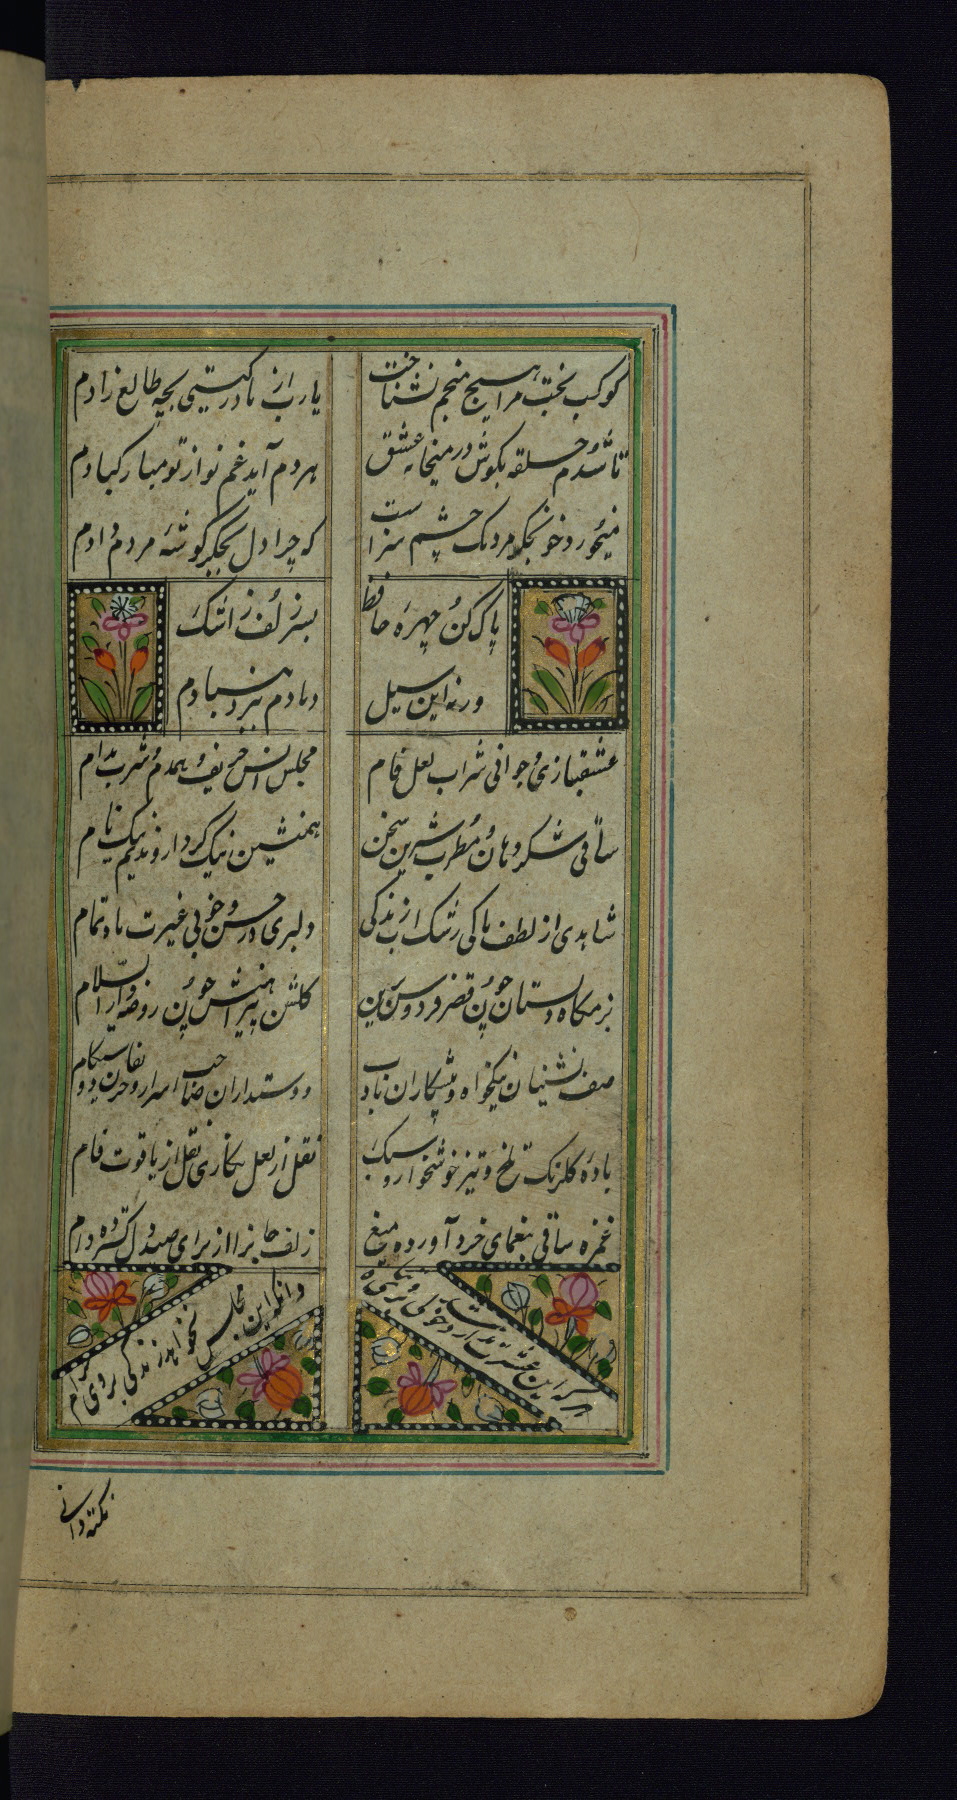 کوکب بخت مرا هیچ منجم نشناخت
یارب از مادر گیتی بچه طالع زادم
تا شدم حلقه بکوش در میخانه عشق
هر دم آید غم نو از تو مبارکبادم
میخورد خون جکرم مردمک چشم سزاست
که چرا دل بجکرکوشهٔ مردم دادم
پاک کن چهرهٔ حافظ
بسر زلف ز اشک
ورنه این سیل
دمادم ببرد بنیادم
عشقبازی و جوانی شراب لعل فام
مجلس انس حریف و همدم و شرب مدام
ساقی شکر دهان و مطرب شیرین سخن
همنشین نیک کردار و ندیم نیک نام
شاهدی از لطف پاکی رشک آب زندکی
دلبری در حسن و خوبی غیرت ماه تمام
بزمکاه دلستان چون قصر فردوس برین
کلشن پیرامنش چون روضهٔ دارالسلام
صف نشینان نیکخواه و پیشکاران با ادب
دوستداران صاحب اسرار و حریفان دوستکام
بادهٔ کلرنک تلخ و تیز خوشخوار و سبک
نقل از لعل نکاری نقل از یاقوت فام
غمزه ساقی بیغمای خرد آورده تیغ
زلف جانرا از برای صید دل کسترده دام
هر که این عشرت ندارد خوشدلی بروی تباه
وانکه این مجلس نخواهد زندکی بروی حرام
نکته دانی